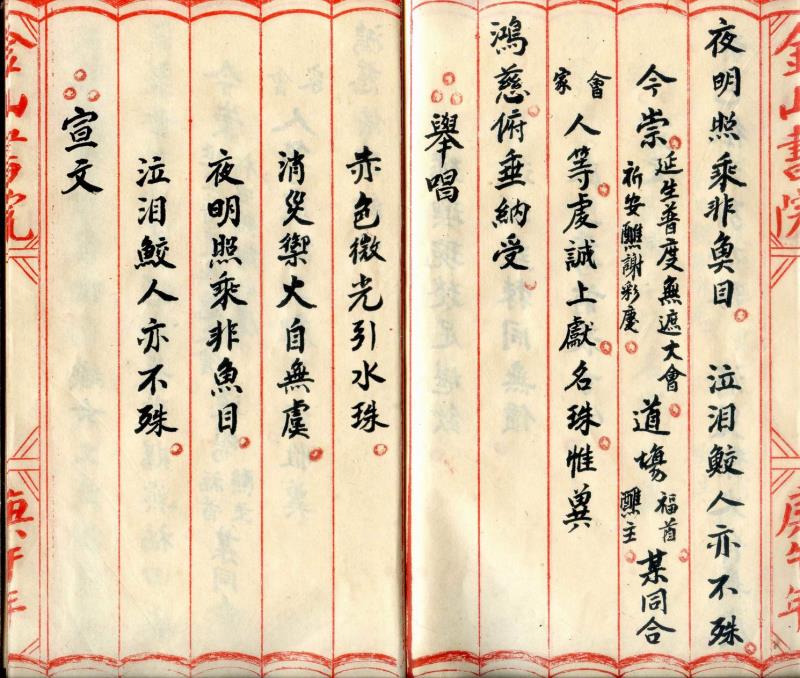 金山書院
庚午年
夜明照乘非魚目 泣泪鮫人亦不殊
今崇 延生普度無遮大會 道塲 福首 某同合
祈安醮謝彩慶 醮主
會 人等虔誠上獻名珠惟冀
家
鴻慈俯垂納受
舉唱
赤色微光引水珠
消災禦大自無虞
夜明照乘非魚目
泣泪鮫人亦不殊
宣文
金山書院
庚午年